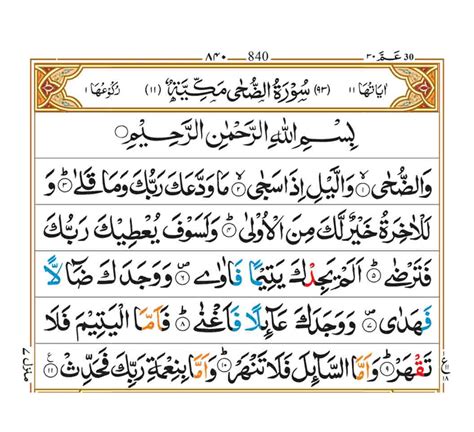 ۳۰ عَمَّ 30 840 ۸۴۰
اٰيَاتُهَا ١١ (٩٣) سُوْرَةُ الضُّحٰى مَكِّيَّةٌ (١١) رُكُوْعُهَا ١
بِسْمِ اللّٰهِ الرَّحْمٰنِ الرَّحِيْمِ
وَالضُّحٰىۙ ۱ وَالَّيْلِ اِذَا سَجٰىۙ ۲ مَا وَدَّعَكَ رَبُّكَ وَمَا قَلٰىؕ ۳ وَ
لَلْاٰخِرَةُ خَيْرٌ لَّكَ مِنَ الْاُوْلٰىؕ ۴ وَلَسَوْفَ يُعْطِيْكَ رَبُّكَ
فَتَرْضٰىؕ ۵ اَلَمْ يَجِدْكَ يَتِيْمًا فَاٰوٰى ۶ وَوَجَدَكَ ضَآلًّا
فَهَدٰى ۷ وَوَجَدَكَ عَآئِلًا فَاَغْنٰىؕ ۸ فَاَمَّا الْيَتِيْمَ فَلَا
تَقْهَرْؕ ۹ وَاَمَّا السَّآئِلَ فَلَا تَنْهَرْؕ ۱۰ وَاَمَّا بِنِعْمَةِ رَبِّكَ فَحَدِّثْ ۱۱